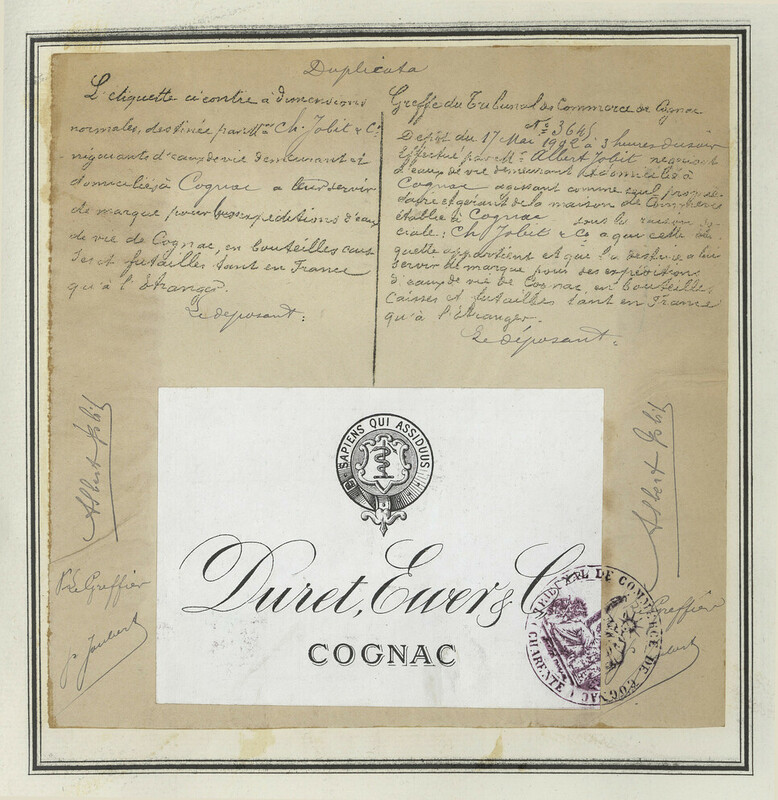 Duplicata
L'etiquette ci contre à dimensions
normales, destinée par Mrs Ch. Jobit & Cie
négociants d'eaux de vie demeurant et
domiciliés à Cognac a leur servir
de marque pour les expeditions d'eaux
de vie de Cognac, en bouteilles cais
ses et futailles tant en France
qu'à l'Etranger.
Le deposant:
Greffe du Tribunal de Commerce de Cognac
No 3645
Depôt du 17 Mai à 3 heures du soir
Effectué par Mr Albert Jobit négociant
d'eaux de vie demeurant et domicilié à
Cognac agissant comme seul proprié
taire et gérant de la maison de Commerce
établie à Cognac sous la raison so
ciale: Ch. Jobit & Co a qui cette éti
quette appartient et qui l'a destinée a lui
servir de marque pour des expéditions
d'eaux de vie de Cognac, en bouteilles,
caisses et futailles tant en France
qu'à l'Etranger.
Le déposant:
Albert Jobit
Albert Jobit
SAPIENS QUI ASSIDUUS
Duret, Ewer & Co
COGNAC
TRIBUNAL DE COMMERCE DE COGNAC
(CHARENTE)
Greffier
p. Joubert
Greffier